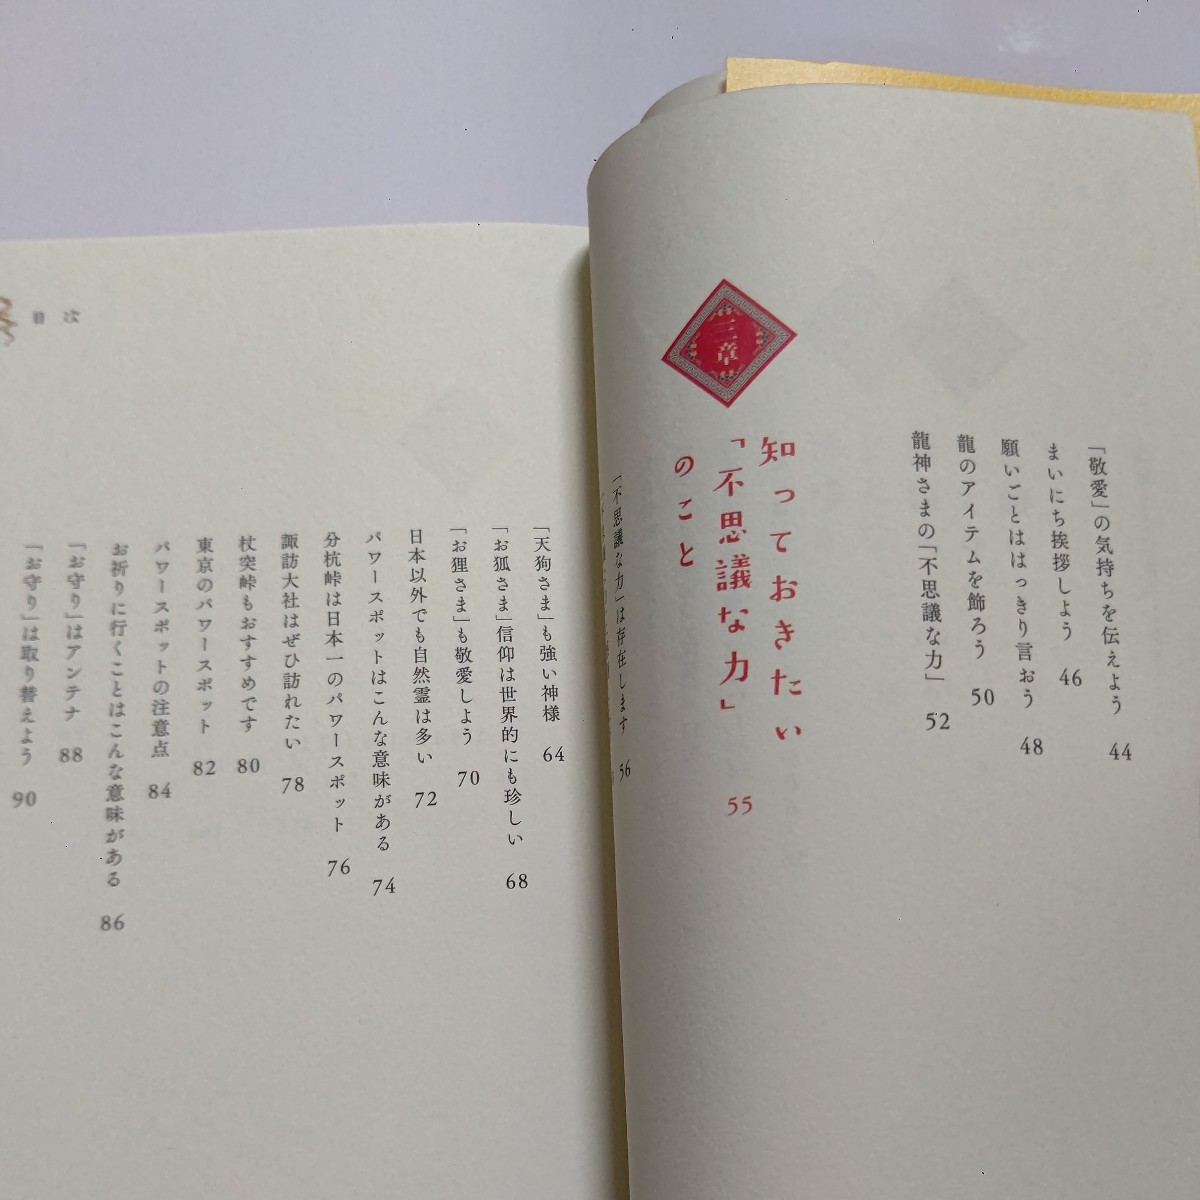 「敬愛」の気持ちを伝えよう 44
まいにち挨拶しよう 46
願いごとははっきり言おう 48
龍のアイテムを飾ろう 50
龍神さまの「不思議な力」 52
三章
知っておきたい
「不思議な力」
のこと
55
「不思議な力」は存在します 56
目次
「天狗さま」も強い神様 64
「お狐さま」信仰は世界的にも珍しい 68
「お狸さま」も敬愛しよう 70
日本以外でも自然霊は多い 72
パワースポットはこんな意味がある 74
分杭峠は日本一のパワースポット 76
諏訪大社はぜひ訪れたい 78
杖突峠もおすすめです 80
東京のパワースポット 82
パワースポットの注意点 84
お祈りに行くことはこんな意味がある 86
「お守り」はアンテナ 88
「お守り」は取り替えよう 90